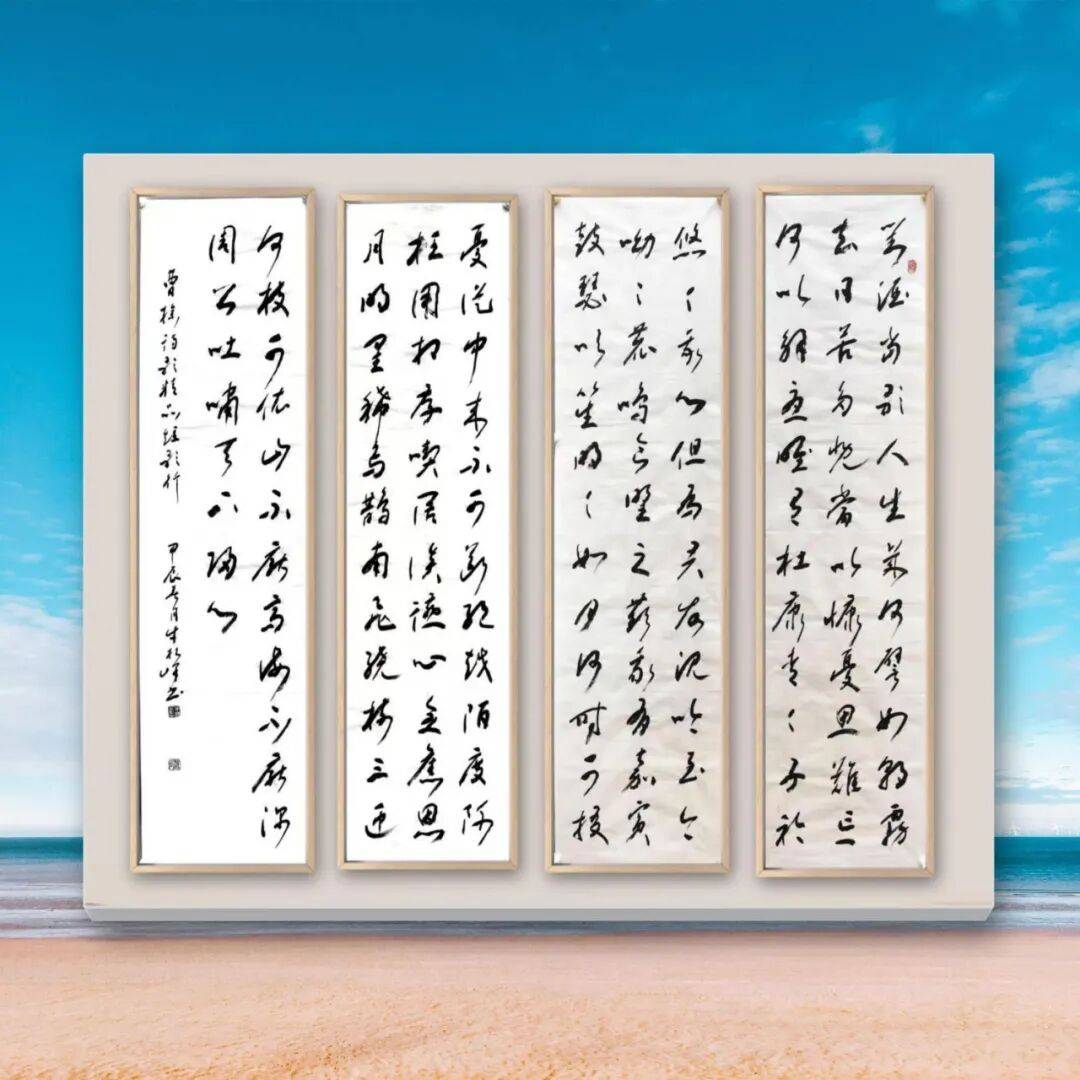 对酒当歌人生幾何譬如朝露
去日苦多慨當以慷憂思難忘
何以解憂唯有杜康青〻子衿
悠〻我心但為君故沉吟至今
呦〻鹿鳴食野之蘋我有嘉賓
鼓瑟吹笙明〻如月何時可掇
憂從中來不可斷絕越陌度阡
枉用相存喫闊談讌心念舊恩
月明星稀烏鵲南飛繞樹三匝
何枝可依山不厭高海不厭深
周公吐哺天下歸心
曹操詩歌精品短歌行 甲辰 月牛松峰書